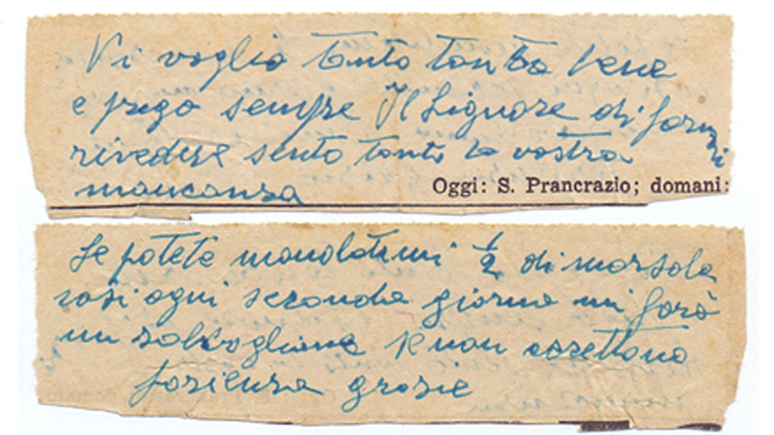 Vi voglio tanto tanto bene
e prego sempre Il Signore di farmi
rivedere sento tanto la vostra
mancanza
Oggi: S. Prancrazio; domani:
Se potete mandatemi ½ di marsala
così ogni secondo giorno mi farò
un zabaglione se non accettano
pazienza grazie